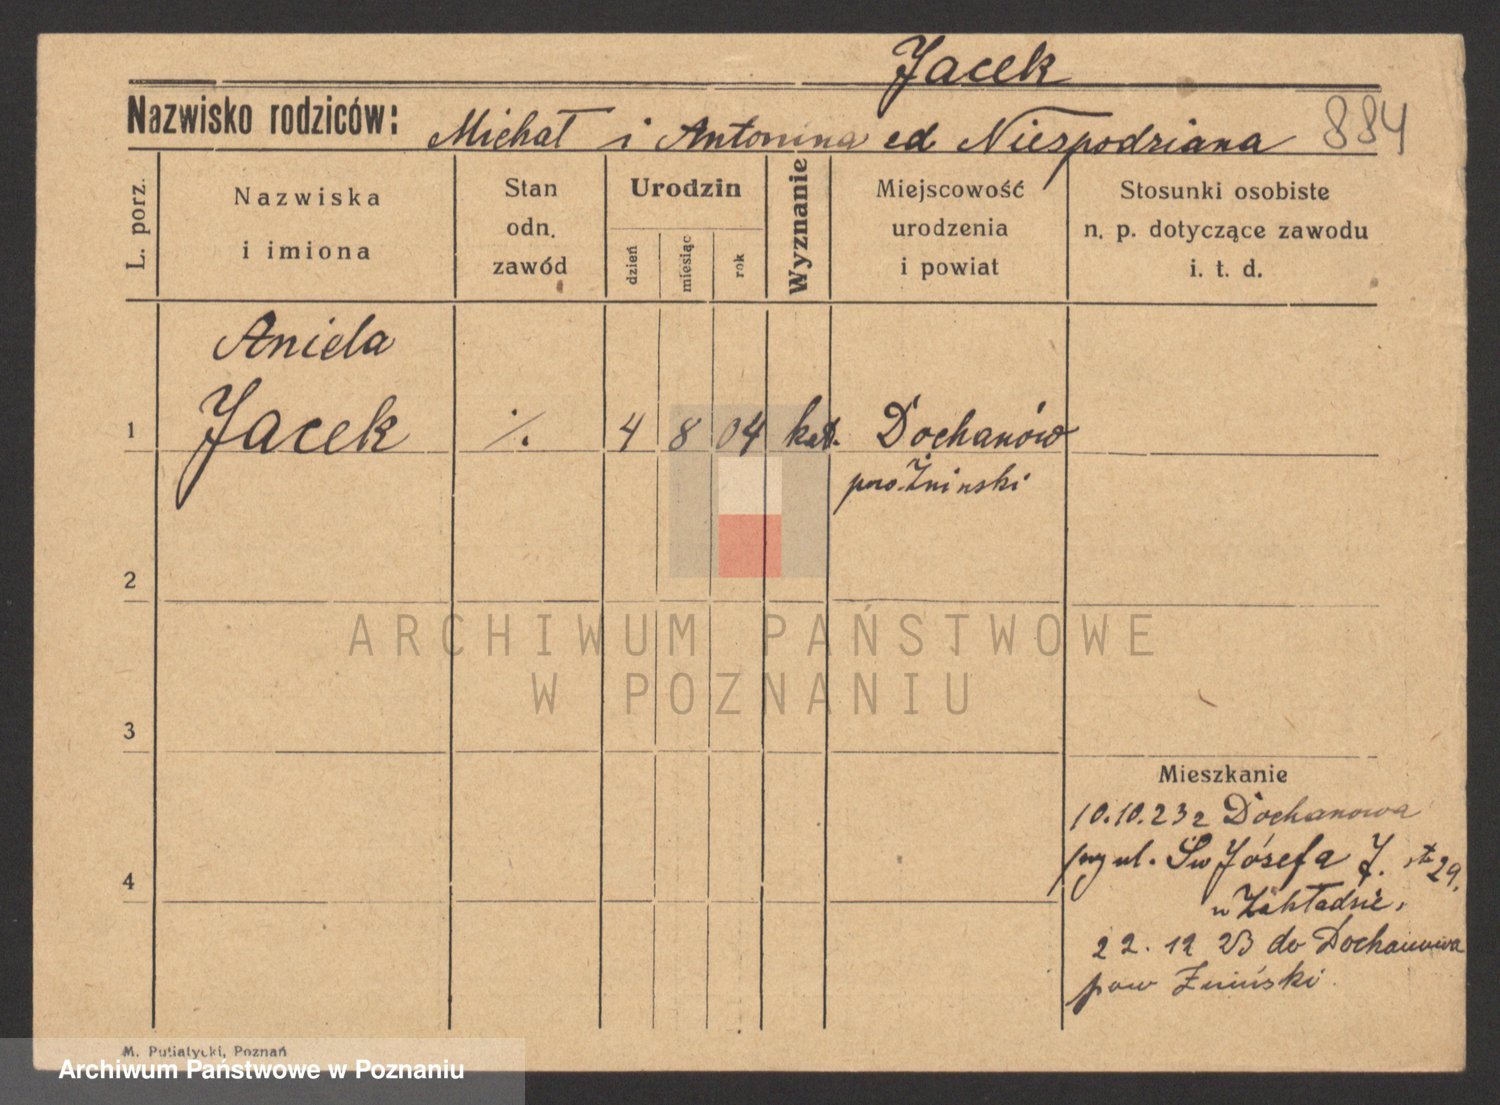 Jacek
Nazwisko rodziców: Michał i Antonina ed Niespodziana 884
L. porz.
Nazwiska
i imiona
Stan
odn.
zawód
Urodzin
dzień
miesiąc
rok
Wyznanie
Miejscowość
urodzenia
i powiat
Stosunki osobiste
n. p. dotyczące zawodu
i. t. d.
Aniela
1 Jacek ./. 4 8 04 kat. Dochanów
pow. Żninski
2
ARCHIWUM PAŃSTWOWE
W POZNANIU
3
Mieszkanie
10.10.23 z Dochanowa
ul. Św Józefa 29.
w Zakładzie,
4
22. 12 23 do Dochanowa
pow Żniński.
M. Putiatycki, Poznań
Archiwum Państwowe w Poznaniu